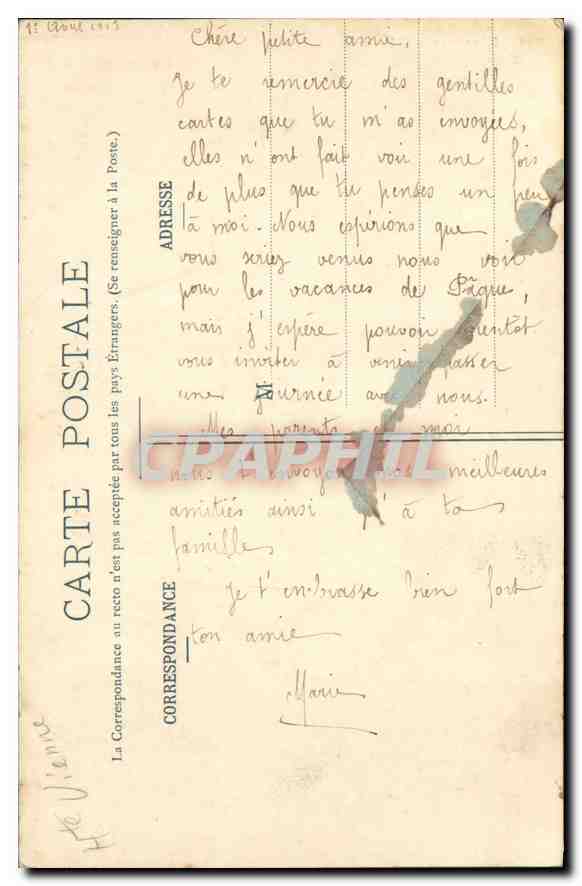 1er Avril 1913
Chère petite amie,
Je te remercie des gentilles
cartes que tu m'as envoyées,
elles n'ont fait voir une fois
de plus que tu penses un peu
à moi. Nous espérions que
vous seriez venus nous voir
pour les vacances de Pâques,
mais j'espère pouvoir bientot
vous inviter à venir passer
une journée avec nous.
Mes parents et moi
nous envoyons nos meilleures
amitiés ainsi qu'à ta
famille
Je t'embrasse bien fort
ton amie
Marie
CARTE POSTALE
La Correspondance au recto n'est pas acceptée par tous les pays Étrangers. (Se renseigner à la Poste.)
CORRESPONDANCE
ADRESSE
M
Hte Vienne
CPAPHIL